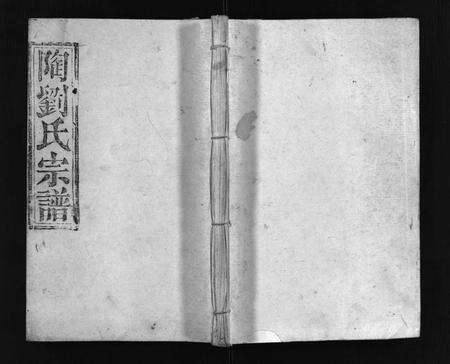 陶劉氏宗譜